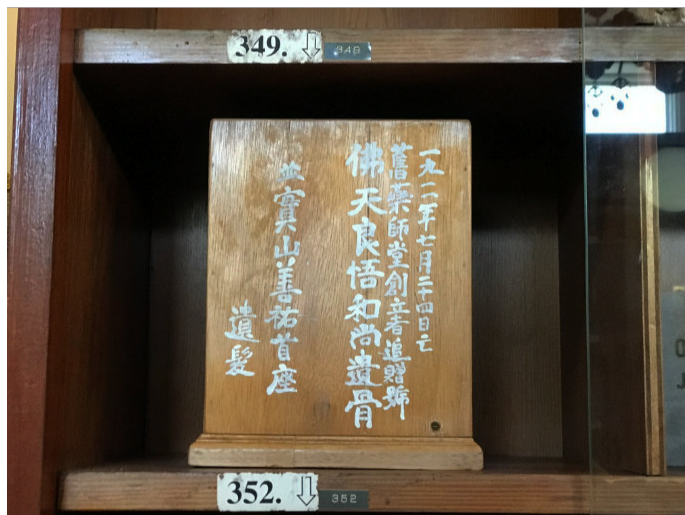 349.
349
一九一二年七月二十四日亡
舊藥師堂創立者追贈號
佛天良悟和尚遺骨
並實山善祐首座
遺髮
352.
352